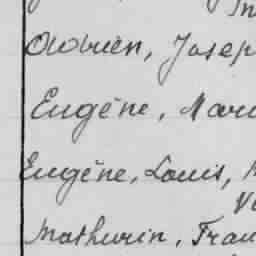 Adrien, Josep
Eugène, Mari
Eugène, Louis,
Mathurin, Fran